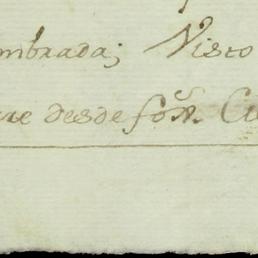 mbrada; Visto
re desde fox.